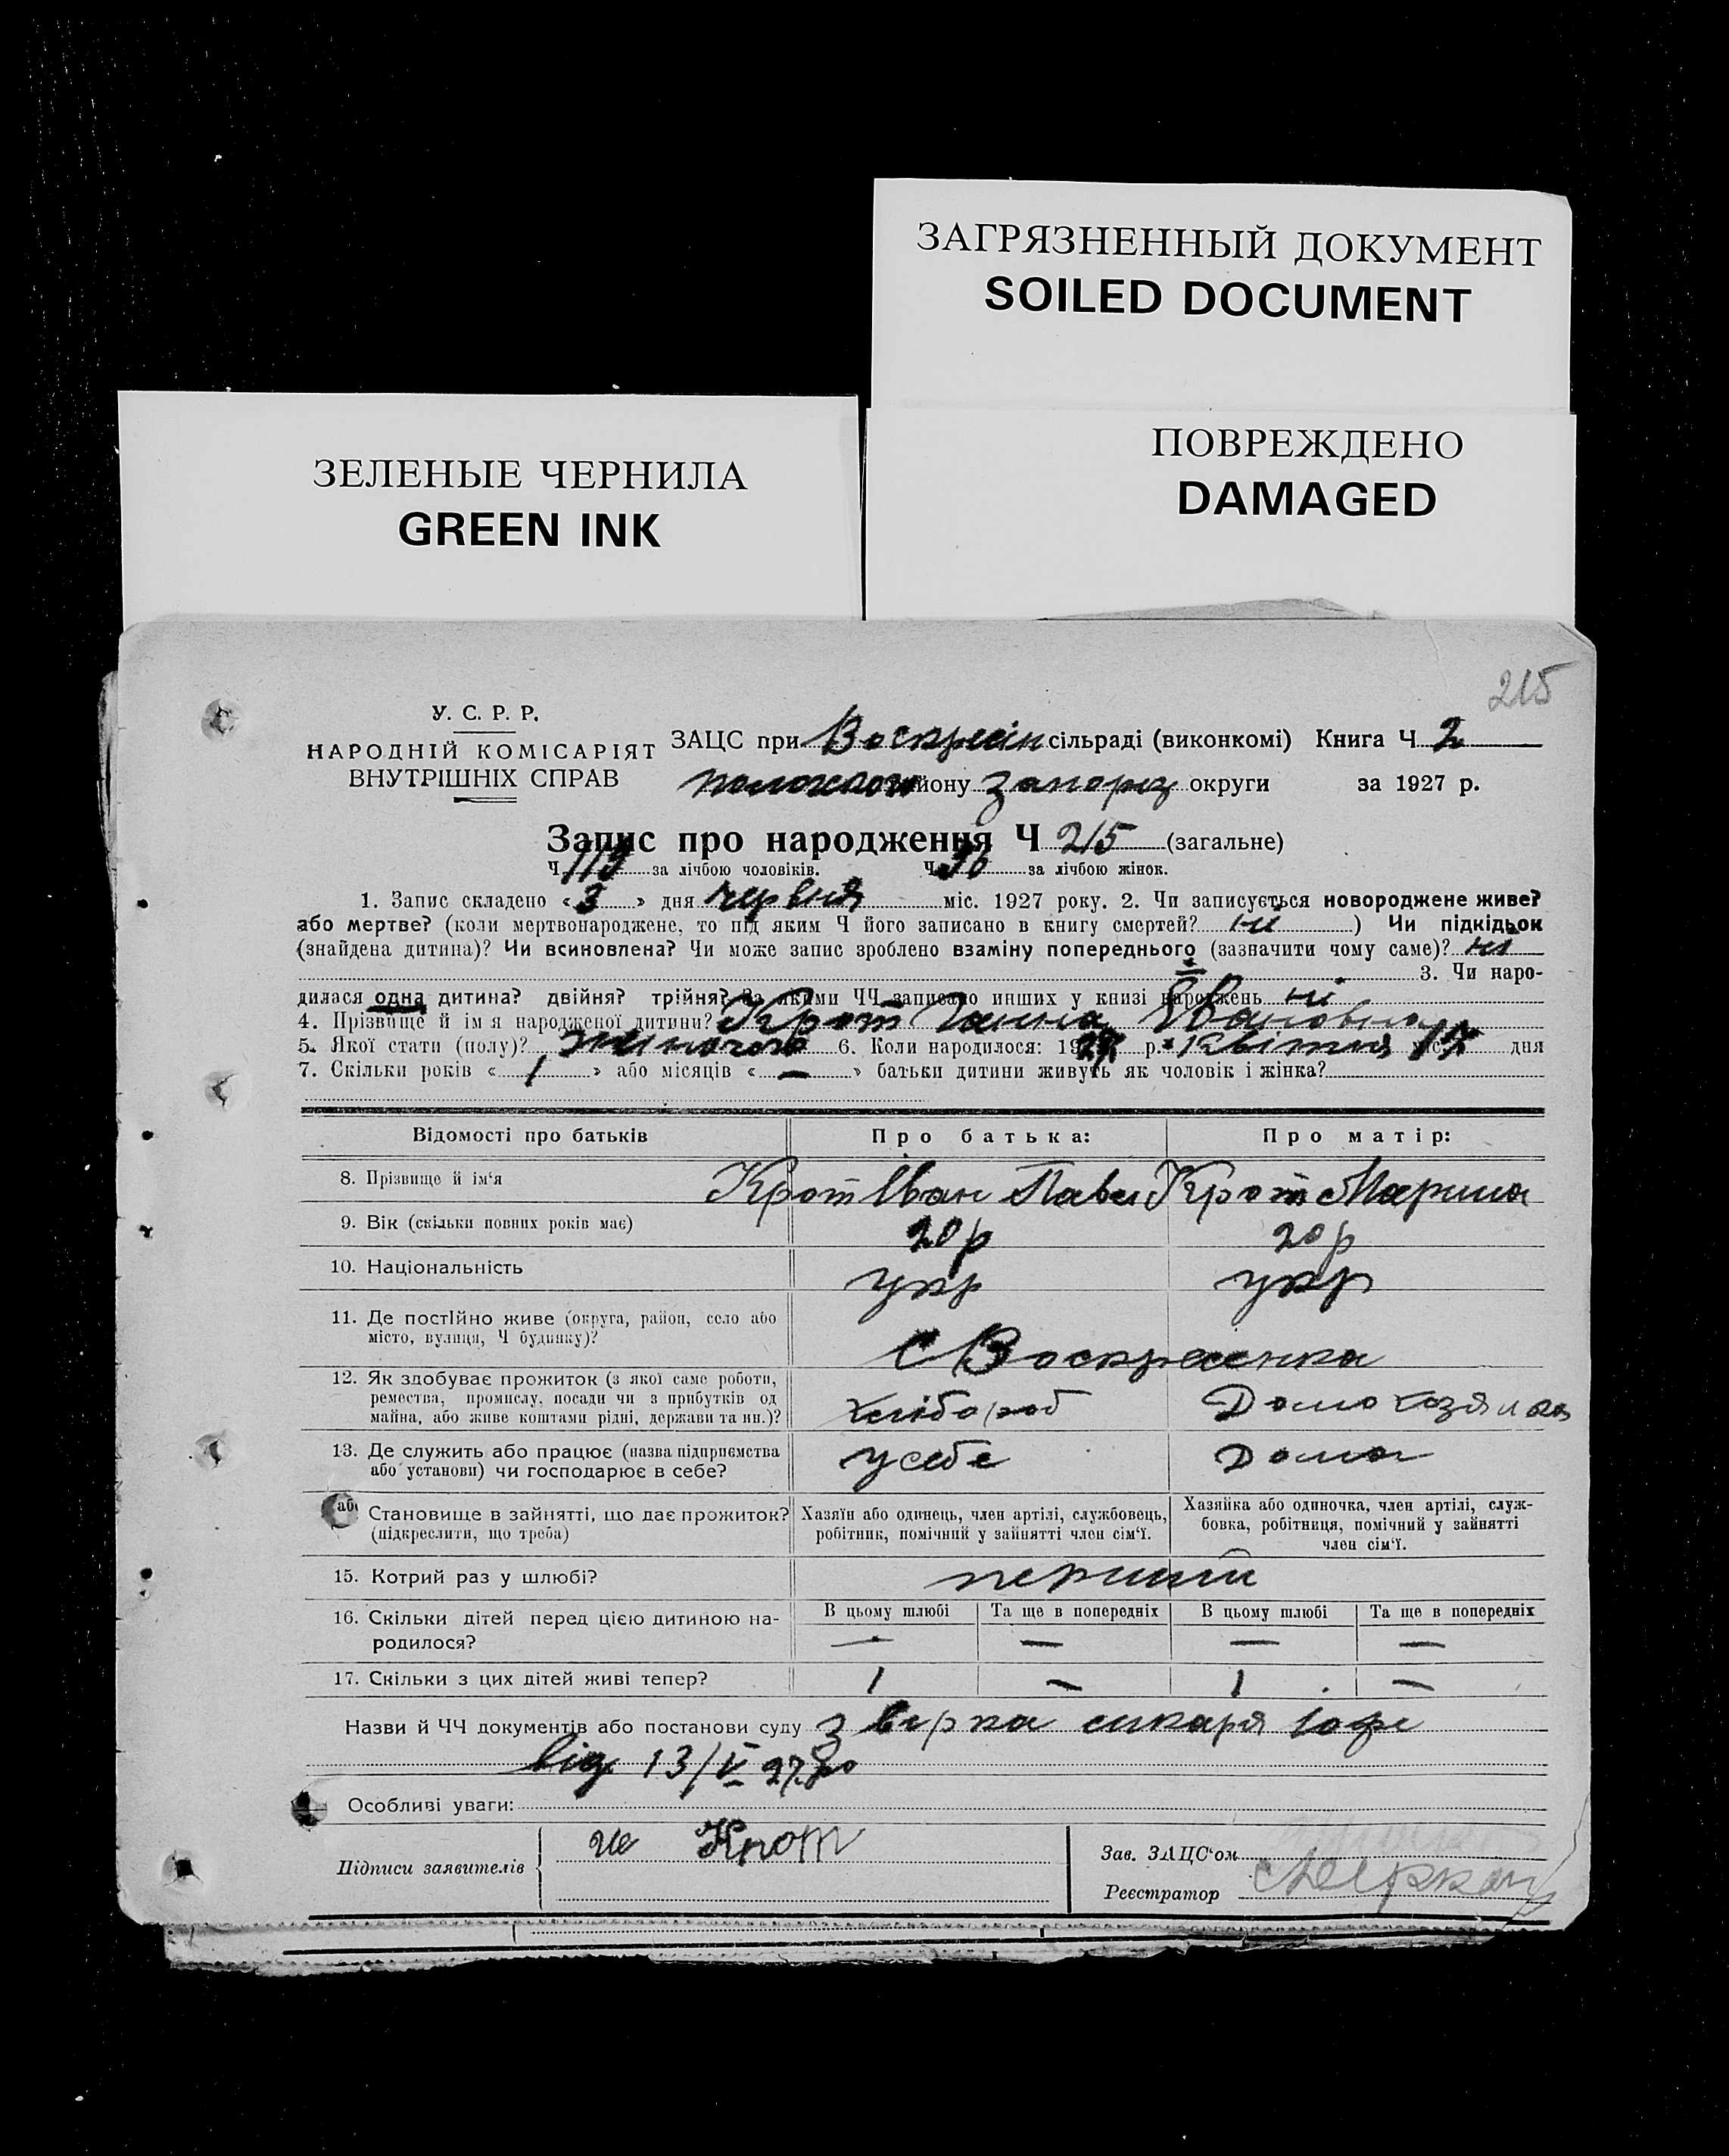 ЗАГРЯЗНЕННЫЙ ДОКУМЕНТ
SOILED DOCUMENT
ЗЕЛЕНЫЕ ЧЕРНИЛА
GREEN INK
ПОВРЕЖДЕНО
DAMAGED
215
У. С. Р. Р.
НАРОДНІЙ КОМІСАРІЯТ
ВНУТРІШНІХ СПРАВ
ЗАЦС при Воскресін сільраді (виконкомі) Книга Ч 2
району Запоріз округи за 1927 р.
Запис про народження Ч 215 (загальне)
Ч 119 за лічбою чоловіків. Ч 96 за лічбою жінок.
1. Запис складено «3» дня червня міс. 1927 року. 2. Чи записується новороджене живе?
або мертве? (коли мертвонароджене, то під яким Ч його записано в книгу смертей? ні ) Чи підкідьок
(знайдена дитина)? Чи всиновлена? Чи може запис зроблено взаміну попереднього (зазначити чому саме)? ні
3. Чи наро-
дилася одна дитина? двійня? трійня? За якими ЧЧ записано инших у книзі народжень ні
4. Прізвище й ім я народженої дитини? Крот Ганна Івановна
5. Якої стати (полу)? жіночого 6. Коли народилося: 1927 р. Квітня міс. 17 дня
7. Скільки років «1» або місяців «—» батьки дитини живуть як чоловік і жінка?
Відомості про батьків Про батька: Про матір:
8. Прізвище й ім'я Крот Іван Павл Крот Марина
9. Вік (скільки повних років має) 20 р 20 р
10. Національність укр укр
11. Де постійно живе (округа, район, село або
місто, вулиця, Ч будинку)?
С Воскресенка
12. Як здобуває прожиток (з якої саме роботи,
ремества, промислу, посади чи з прибутків од
майна, або живе коштами рідні, держави та ин.)?
хлібороб Домохазяйка
13. Де служить або працює (назва підприємства
або установи) чи господарює в себе?
у себе Дома
або
Становище в зайнятті, що дає прожиток?
(підкреслити, що треба)
Хазяїн або одинець, член артілі, службовець,
робітник, помічний у зайнятті член сім'ї.
Хазяйка або одиночка, член артілі, служ-
бовка, робітниця, помічний у зайнятті
член сім'ї.
15. Котрий раз у шлюбі? перший
16. Скільки дітей перед цією дитиною на-
родилося?
В цьому шлюбі Та ще в попередніх В цьому шлюбі Та ще в попередніх
— — — —
17. Скільки з цих дітей живі тепер? 1 — 1 —
Назви й ЧЧ документів або постанови суду
від 13/V 27
Особливі уваги:
Підписи заявителів Крот
Зав. ЗАЦС'ом
Реєстратор